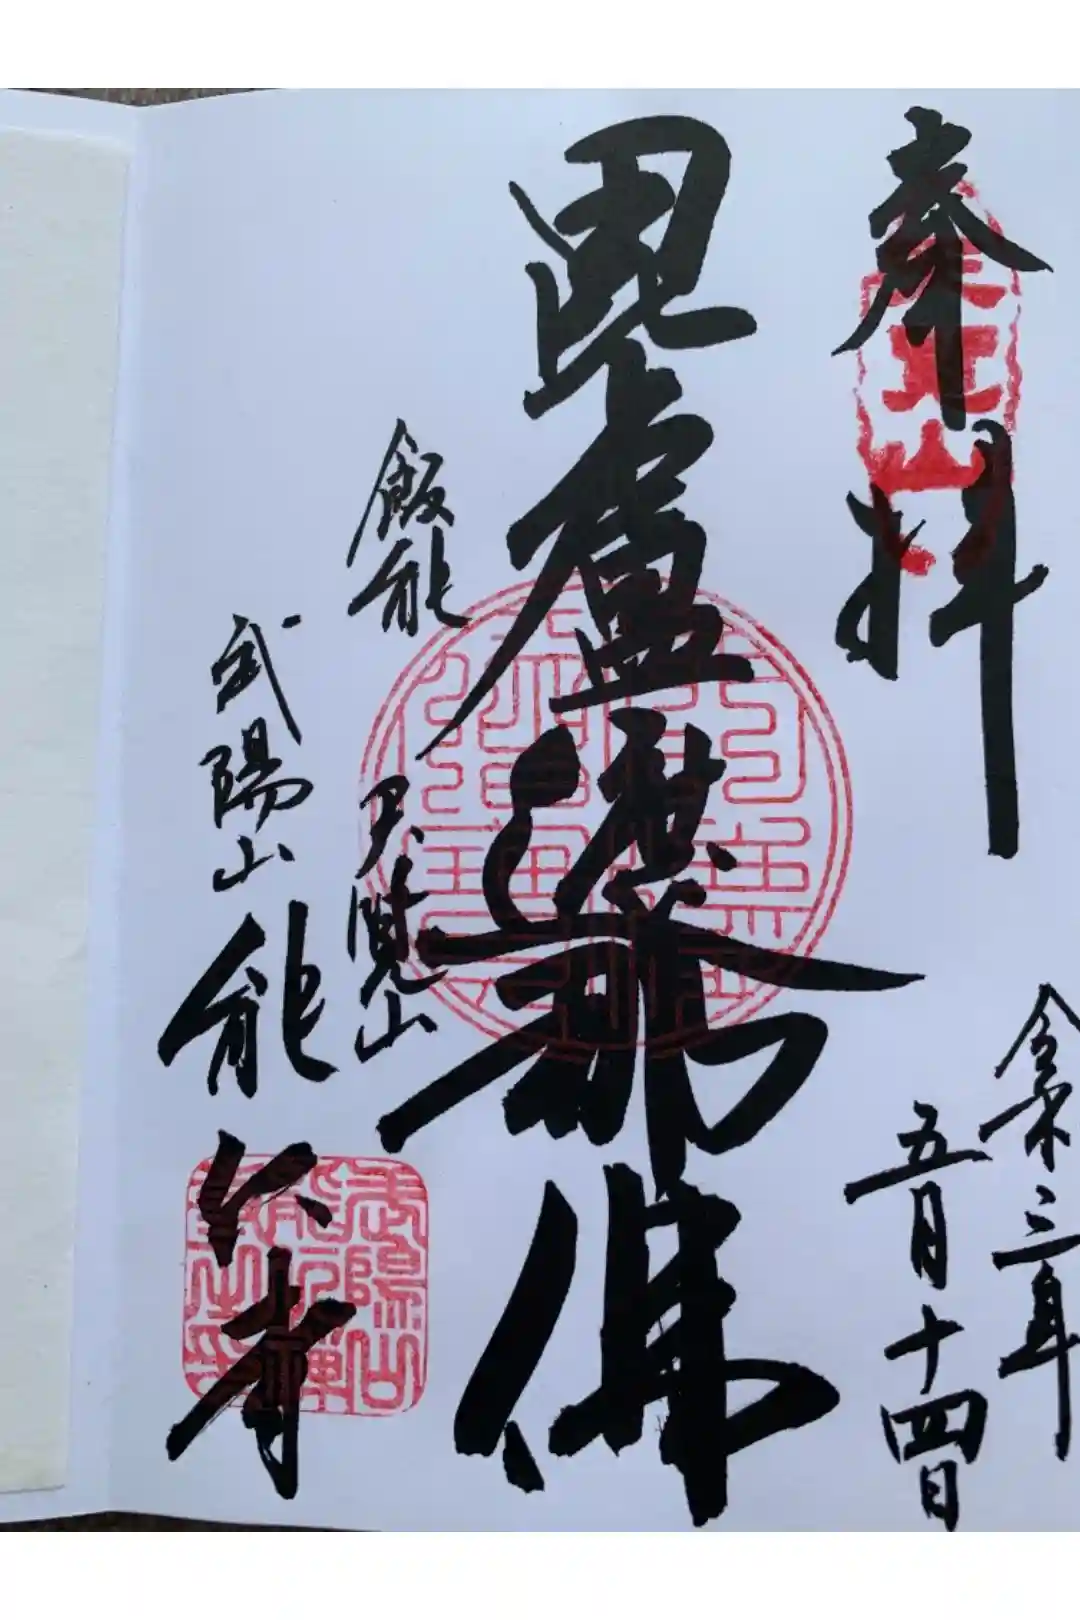 奉拝
令和三年
五月十四日
毘盧遮那佛
飯能
天覧山
武陽山
能仁寺